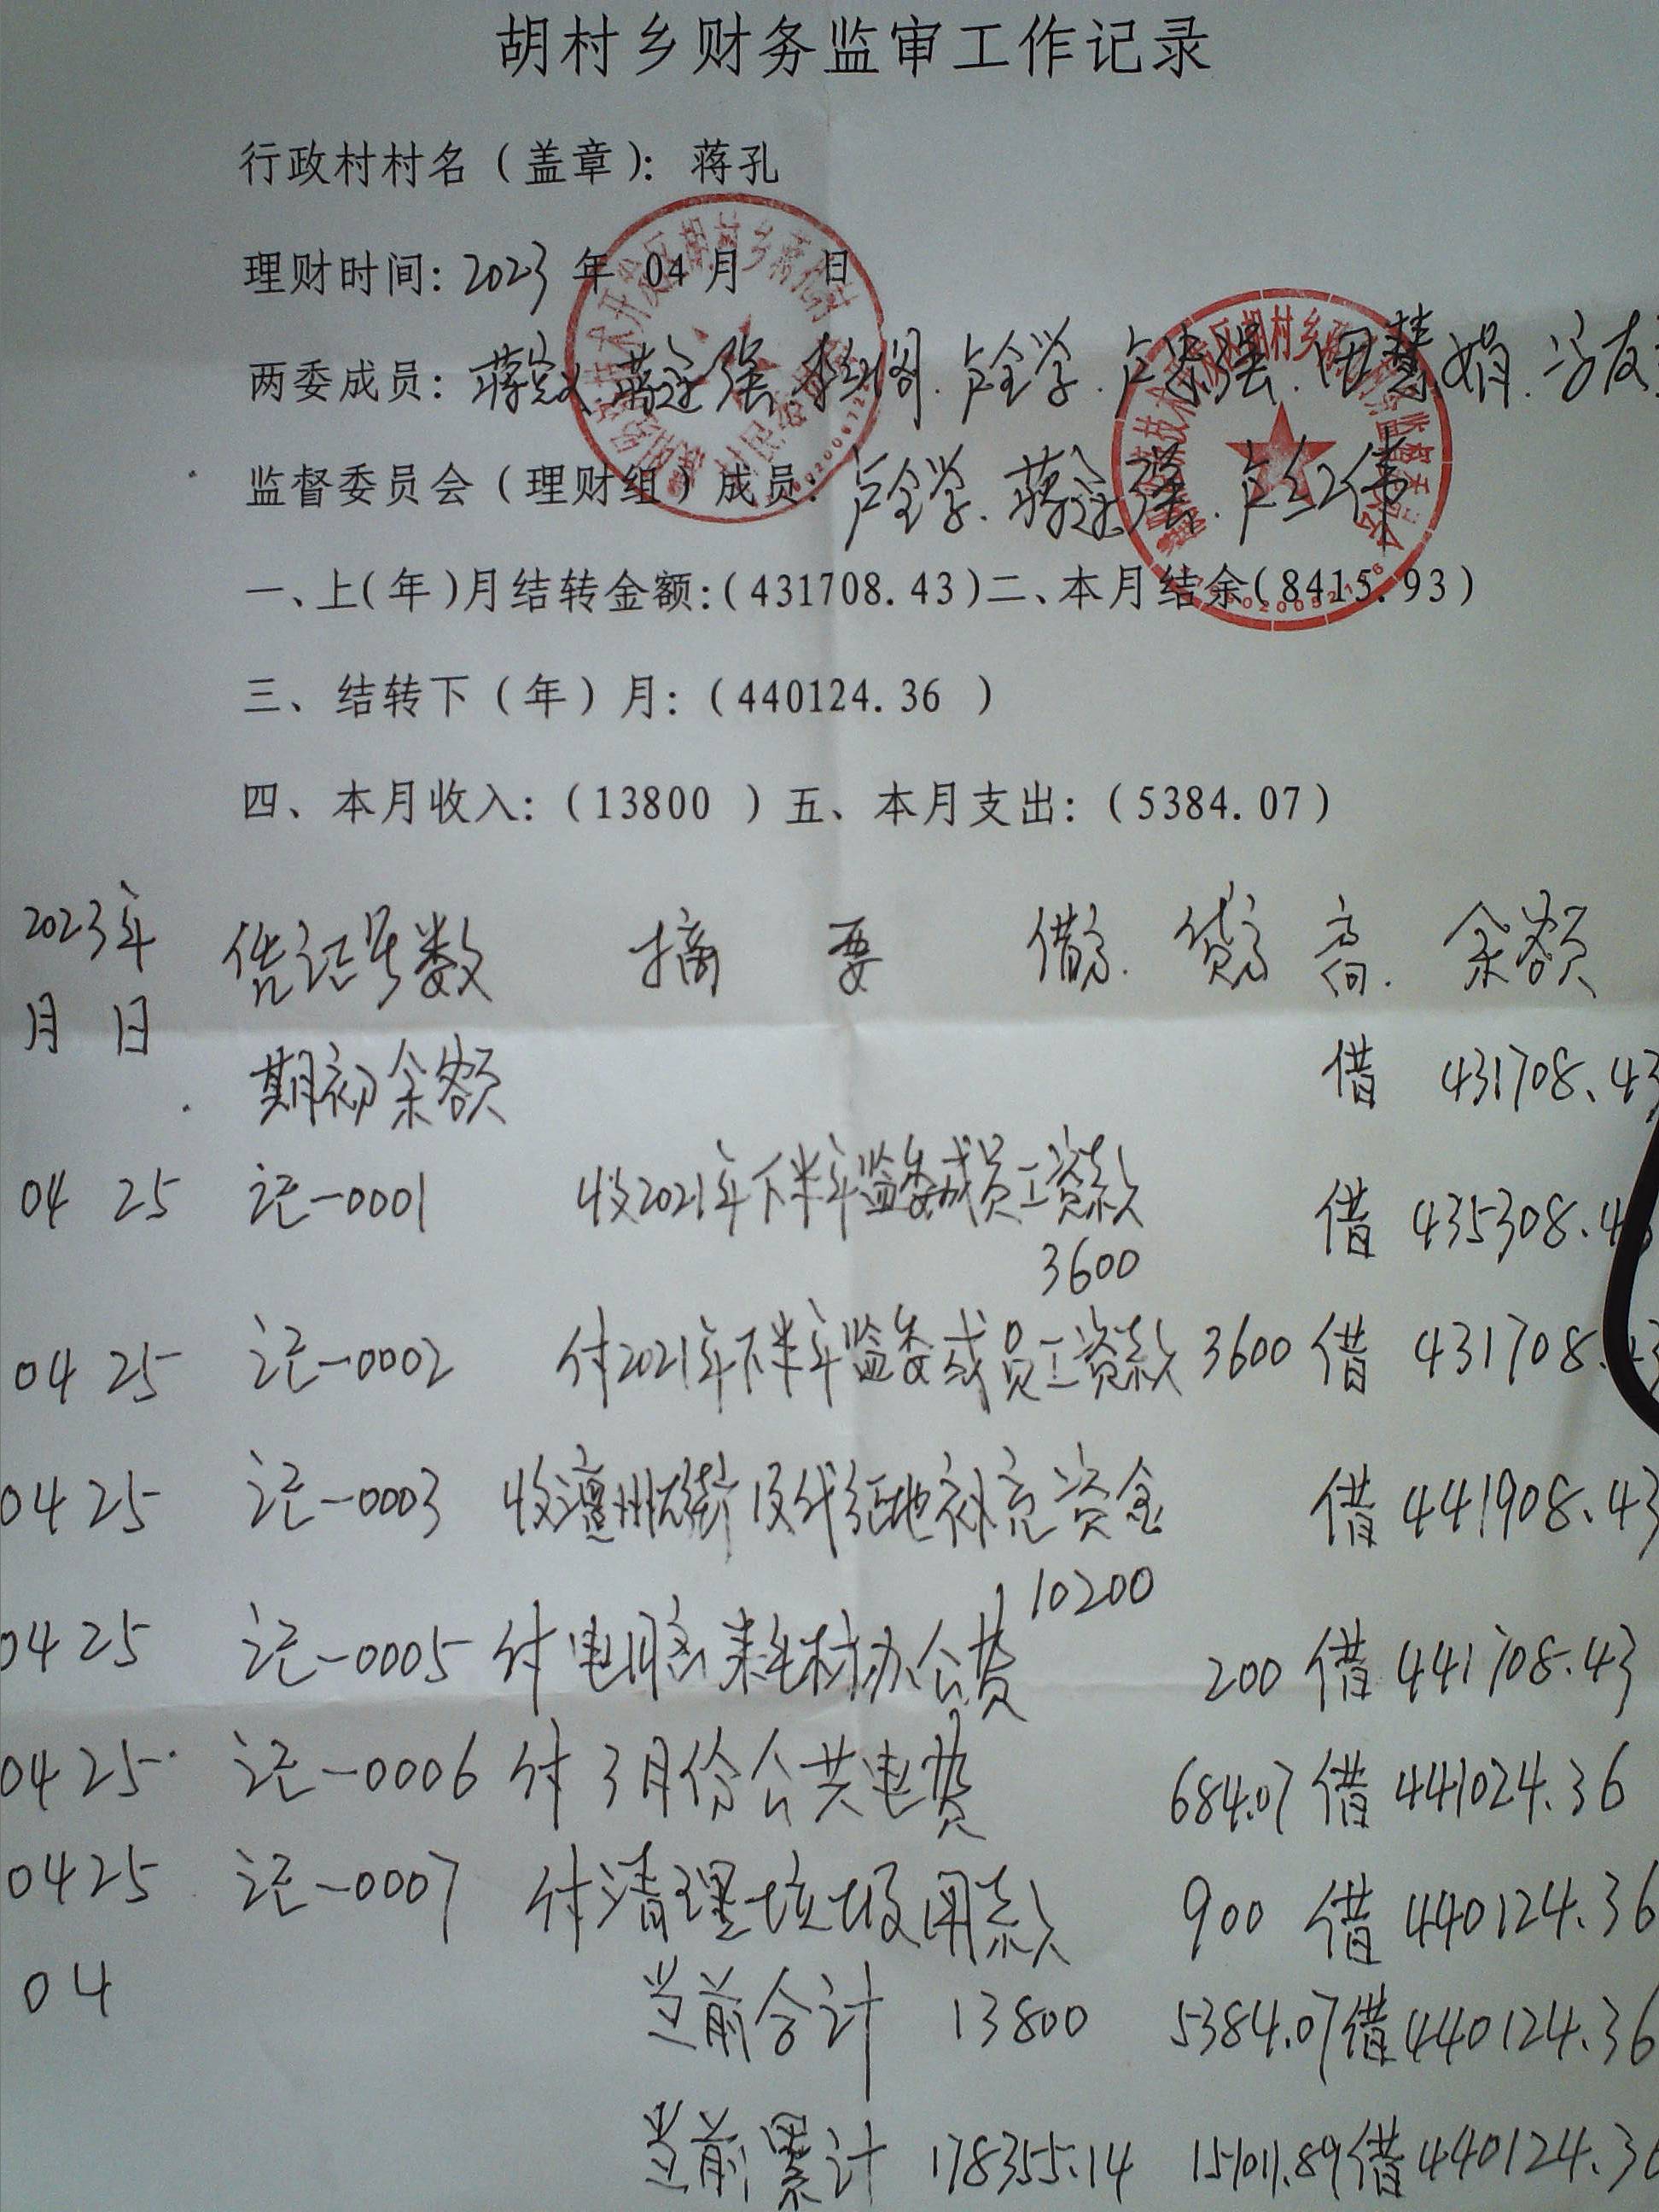 胡村乡财务监审工作记录
行政村村名（盖章）： 蒋孔
理财时间：2023 年 04 月 日
两委成员： 卢全学. 田慧娟.
监督委员会（理财组）成员： 卢全学. 卢红伟
一、上(年)月结转金额:(431708.43)二、本月结余(8415.93)
三、结转下（年）月：（440124.36 ）
四、本月收入：（13800 ）五、本月支出：（5384.07）
2023年 凭证号数 摘 要 借方. 贷方 方向. 余额
月 日
期初余额 借 431708.43
04 25 记-0001 收2021年下半年监委成员工资款 借 435308.43
3600
04 25 记-0002 付2021年下半年监委成员工资款 3600 借 431708.43
04 25 记-0003 收澶州大街及代征地补充资金 借 441908.43
10200
04 25 记-0005 付电脑耗材办公费 200 借 441708.43
04 25 记-0006 付3月份公共电费 684.07 借 441024.36
04 25 记-0007 付清理垃圾用款 900 借 440124.36
04 当前合计 13800 5384.07 借 440124.36
当前累计 178355.14 151011.89 借 440124.36